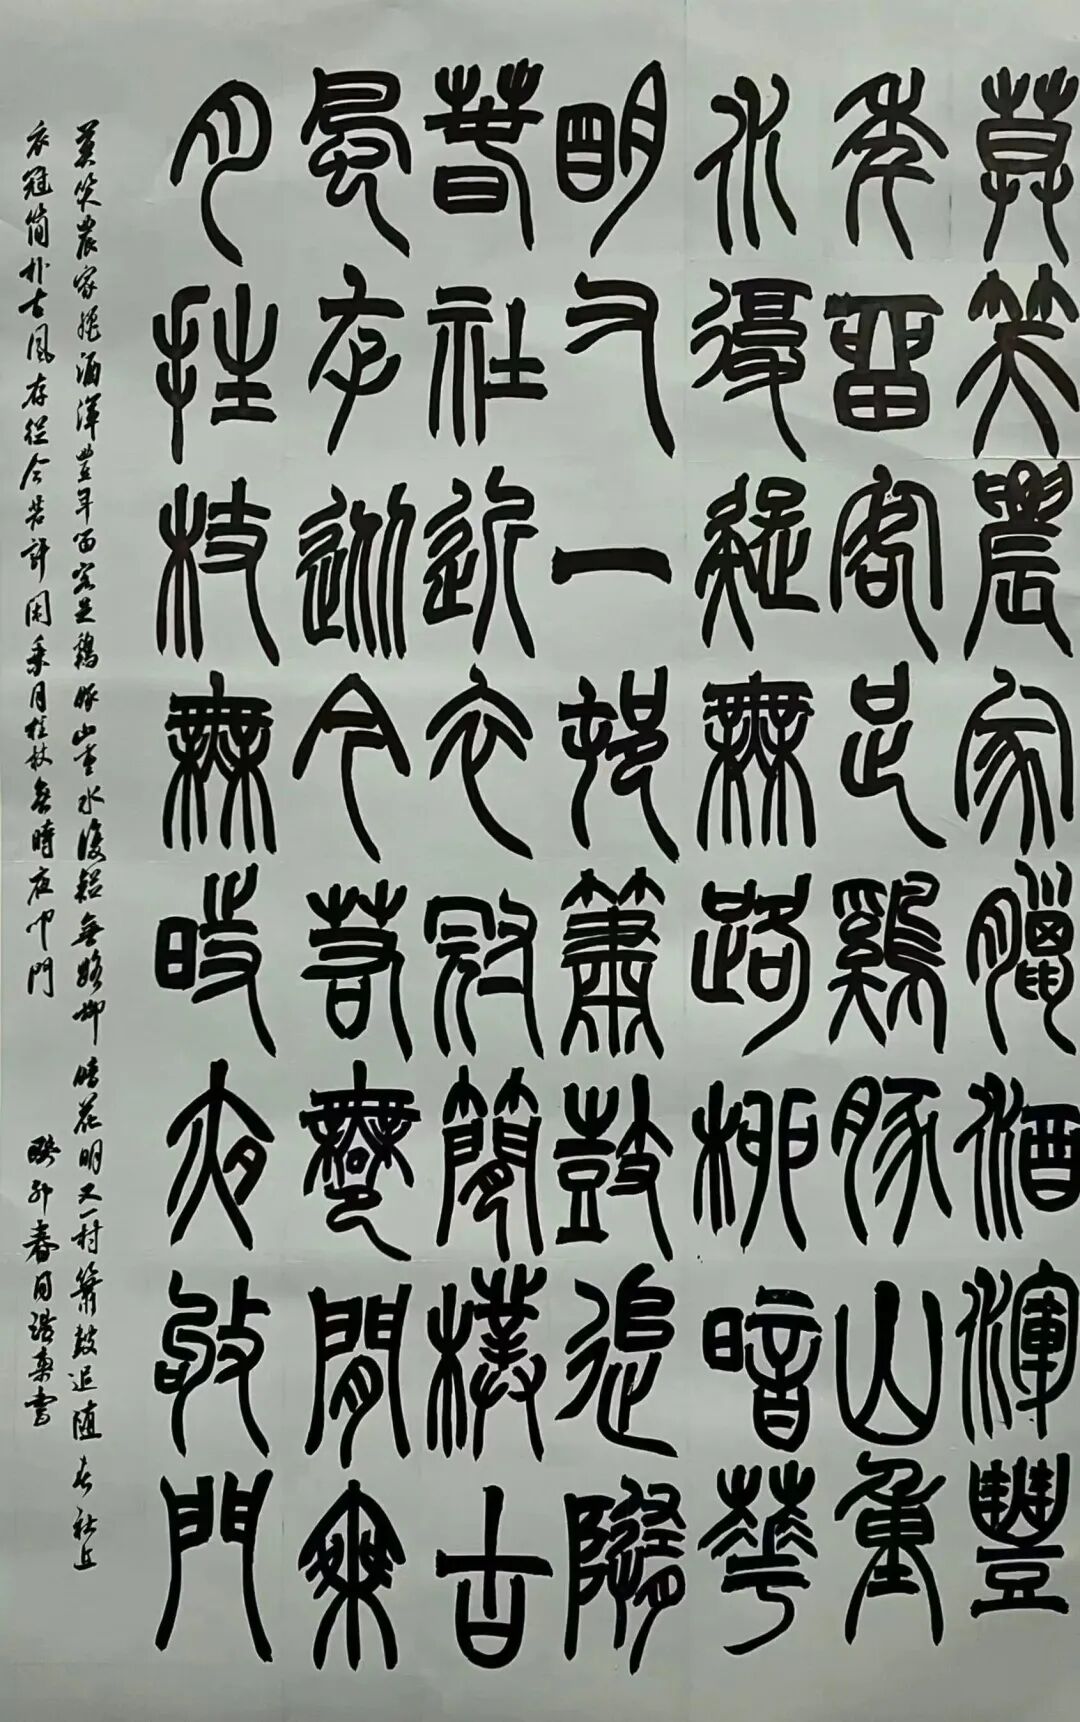 莫笑農家臘酒渾豐
年留客足鷄豚山重
水復疑無路柳暗華
明又一村簫鼓追隨
春社近衣冠簡樸古
風存從今若許閒乘
月拄杖無時夜敂門
莫笑農家臘酒渾豐年留客足鷄豚山重水復疑無路柳暗花明又一村簫鼓追隨春社近
衣冠简朴古風存從今若許閑乘月拄杖無時夜叩門 卯春月書